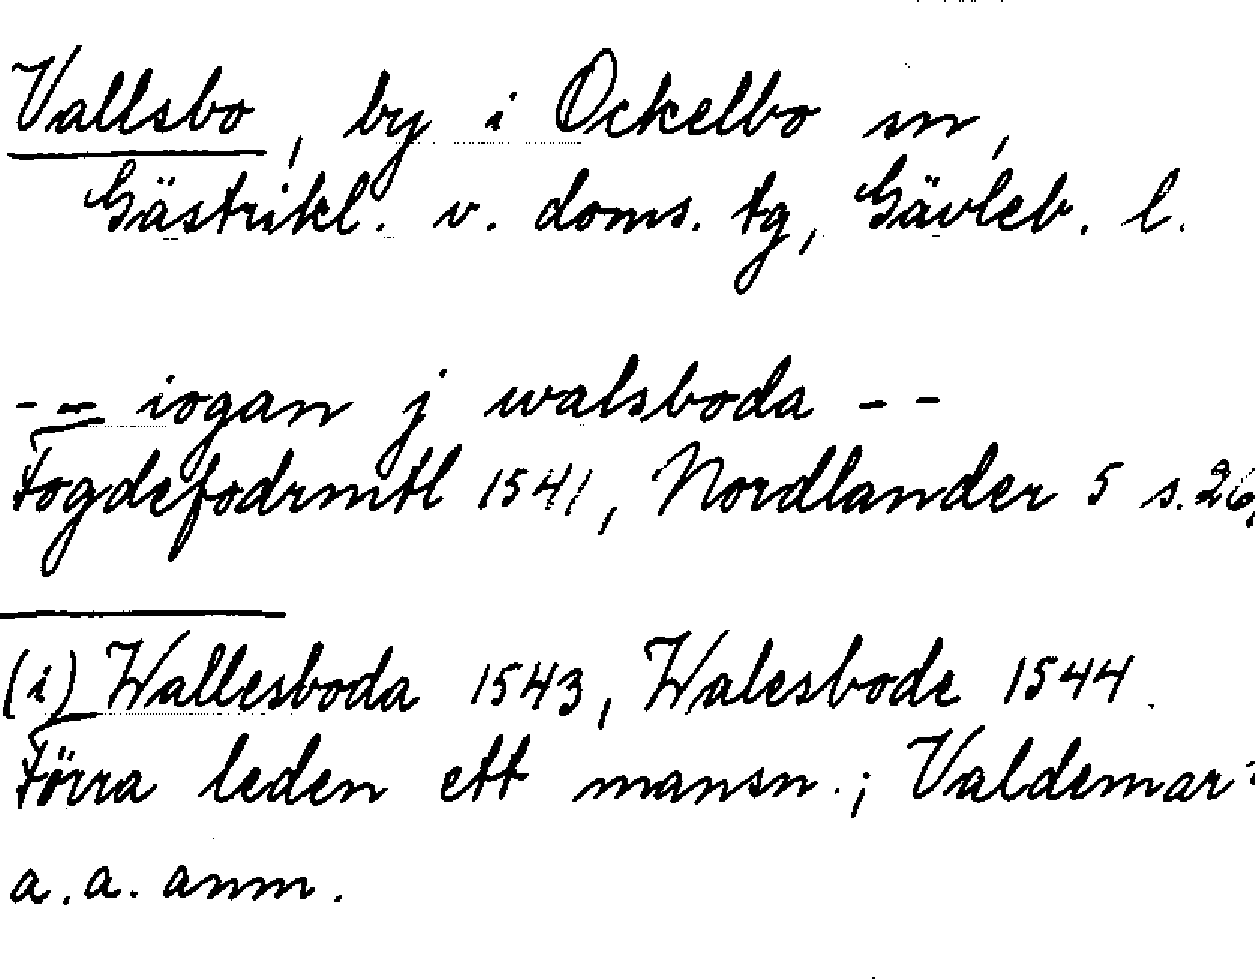 Vallsbo, by i Ockelbo sn,
Gästrikl. v. doms. tg, Gävleb. l.
- - iogan j walsboda - -
Fogdefodrmtl 1541, Nordlander 5 s. 26,
(i) Wallesboda 1543, Walesbode 1544.
Förra leden ett mansn.; Valdemar?
a. a. anm.